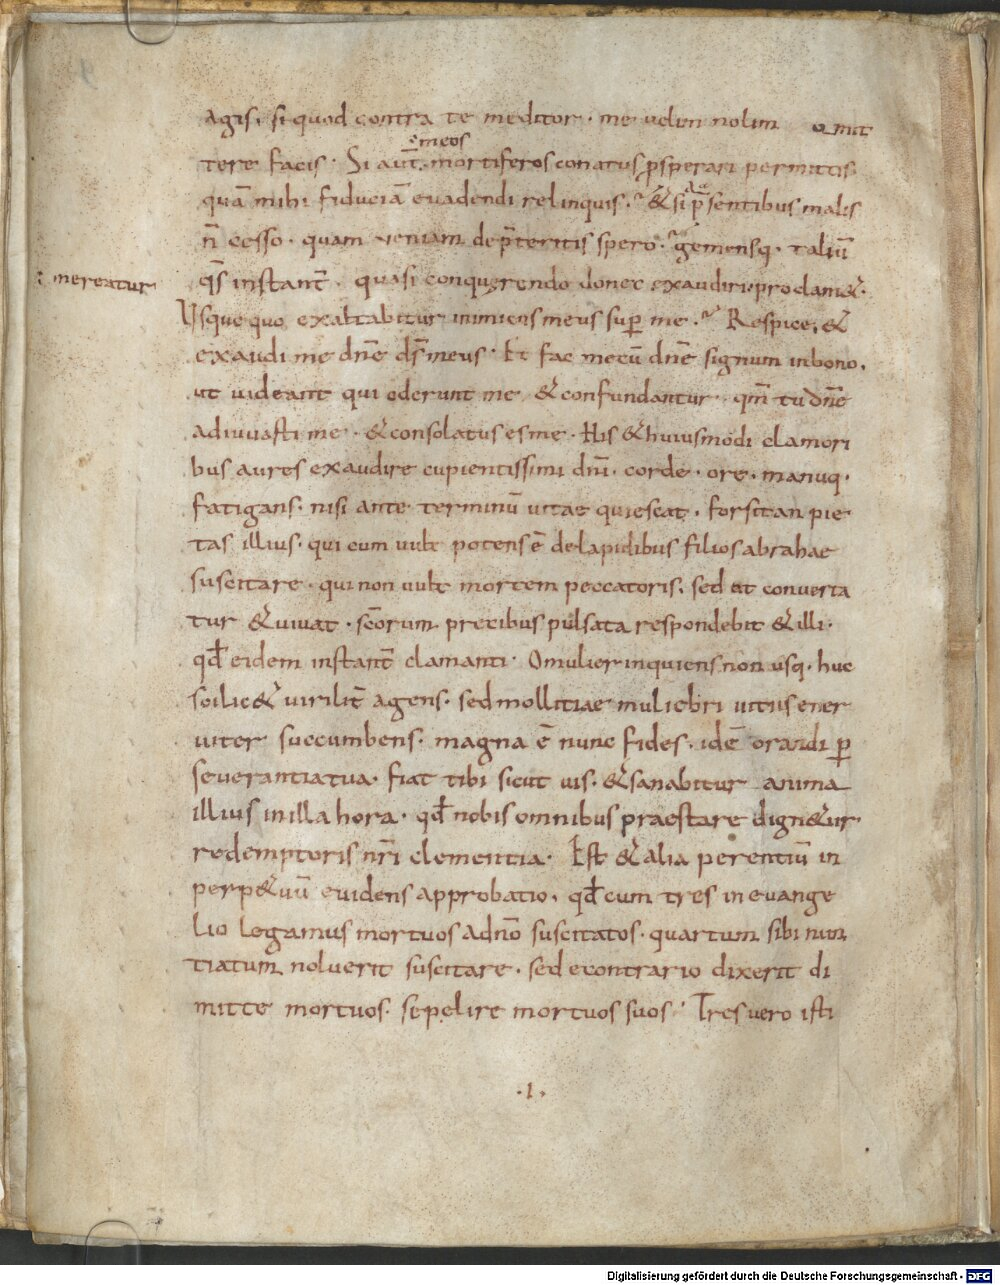 agis, si quod contra te meditor · me uelim nolim omit
: meos
tere facis · Si aut̄ · mortiferos conatus ꝓsperari permittis
quā mihi fiduciā euadendi relinquis · & si p̄sentibus malis
n̄ cesso · quam ueniam de p̄teritis spero · gemensq · taliū
: mereatur
q̄s instant̄ · quasi conquerendo donec exaudiri · proclam& ·
Vsque quo exaltabitur inimicus meus suꝑ me · Respice, &
exaudi me dn̄e ds̄ meus · Et fac mecū dn̄e signum in bono,
ut uideant qui oderunt me & confundantur · qm̄ tu dn̄e
adiuuasti me · & consolatus es me · His & huiusmodi clamori
bus aures exaudire cupientissimi dn̄i · corde · ore · manuq ·
fatigans · nisi ante terminū uitae quiescat · forsitan pie
tas illius · qui cum uult potens ē de lapidibus filios abrahae
suscitare · qui non uult mortem peccatoris, sed ut conuerta
tur & uiuat · scōrum precibus pulsata respondebit & illi ·
qd̄ eidem instant̄ clamanti · O mulier inquiens non usq · huc
scilic& uirilit̄ agens · sed mollitiae muliebri uitiis ener
uiter succumbens · magna ē nunc fides · idē orandi ꝑ
seuerantia tua · fiat tibi sicut uis · & sanabitur anima
illius in illa hora · qd̄ nobis omnibus praestare dign&ur
redemptoris nr̄i clementia · Est & alia perentiū in
perp&uū euidens approbatio, qd̄ cum tres in euange
lio legamus mortuos a dn̄o suscitatos · quartum sibi nun
tiatum noluerit suscitare · sed econtrario dixerit di
mitte mortuos · sepelire mortuos suos · Tres uero isti
· I ·
Digitalisierung gefördert durch die Deutsche Forschungsgemeinschaft - DFG